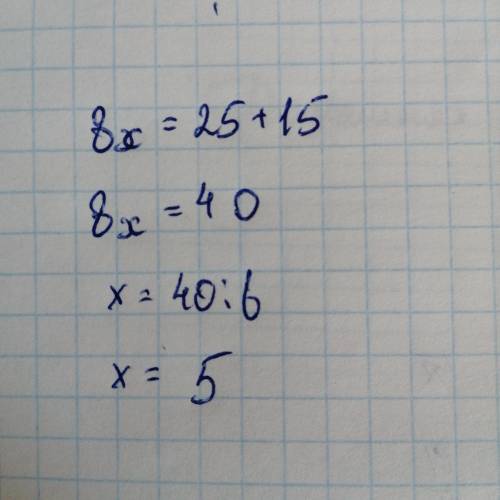 8x = 25 + 15
8x = 40
x = 40 : 6
x = 5